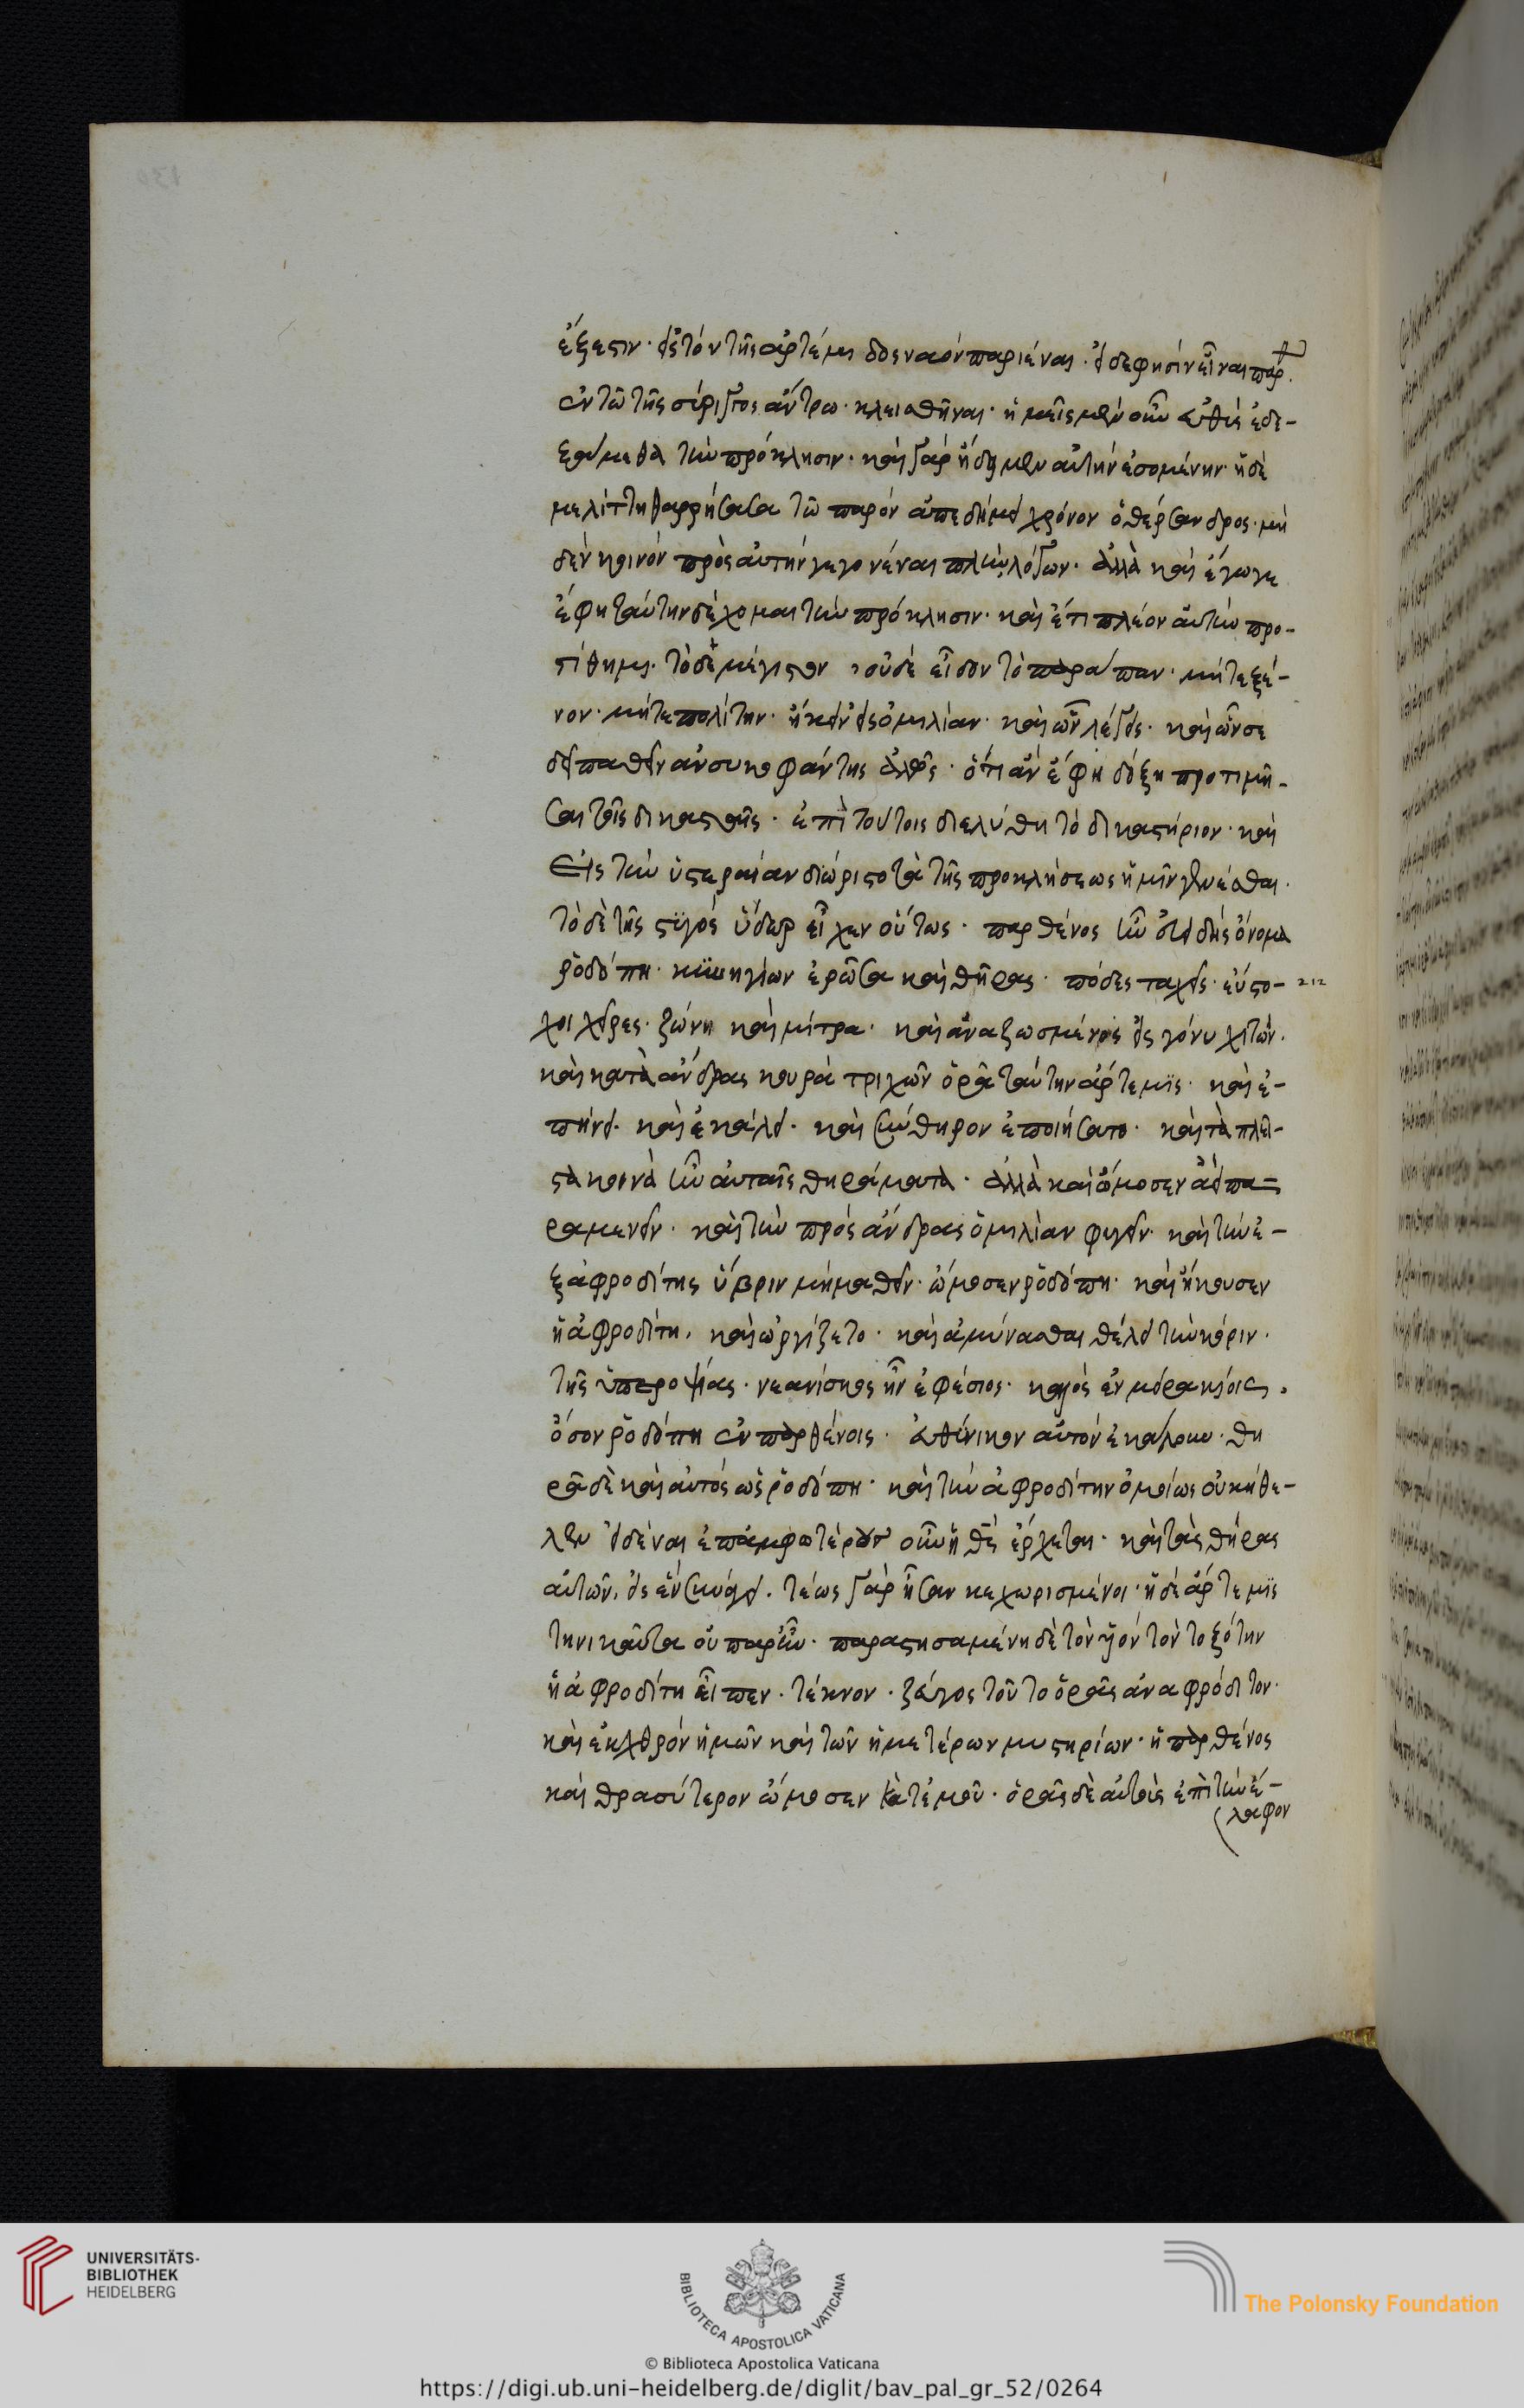 ἔξεστιν· εἰς τὸν τῆς ἀρτέμιδος ναὸν παριέναι· εἰ δέ φησιν εἶναι παρ.
ἐν τῷ τῆς σύριγγος ἄντρω· κλεισθῆναι· ἡμεῖς μὲν οὖν εὐθὺς ἐδε-
ξάμεθα τὴν πρόκλησιν· καὶ γὰρ ἤδειμεν αὐτὴν ἐσομένην· ἡ δὲ
μελίττη θαρρήσασα τῷ παρ' ὃν ἀπεδήμει χρόνον ὁ θέρσανδρος· μη
δὲν κοινὸν πρὸς αὐτὴν γεγονέναι πλὴν λόγων· ἀλλὰ καὶ ἔγωγε
ἔφη ταύτην δέχομαι τὴν πρόκλησιν· καὶ ἔτι πλέον αὐτὴν προ-
τίθημι· τὸ δὲ μέγιστον, οὐδὲ εἶδον τὸ παράπαν· μήτε ξέ-
νον· μήτε πολίτην· ἥκειν εἰς ὁμιλίαν· καὶ ὧν λέγεις· καὶ ὧν σε
δεῖ παθεῖν ἂν συκοφάντης ἁλῷς· ὅτι ἂν ἔφη δόξη προτιμῆ-
σαι τοῖς δικασταῖς· ἐπὶ τούτοις διελύθη τὸ δικαστήριον· καὶ
Εἰς τὴν ὑστεραίαν διώριστο τὰ τῆς προκλήσεως ἡμῖν γενέσθαι.
τὸ δὲ τῆς στυγὸς ὕδωρ εἶχεν οὕτως· παρθένος ἦν εὐειδὴς ὄνομα
ῥοδόπη· κυνηγίων ἐρῶσα καὶ θήρας· πόδες ταχεῖς· εὔστο- 212
χοι χεῖρες· ζώνη καὶ μίτρα· καὶ ἀναζωσμένος εἰς γόνυ χιτών.
καὶ κατὰ ἄνδρας κουρὰ τριχῶν ὁρᾷ ταύτην ἄρτεμις· καὶ ἐ-
πήνει· καὶ ἐκάλει· καὶ σύνθηρον ἐποιήσατο· καὶ τὰ πλεῖ-
στα κοινὰ ἦν αὐταῖς θηράματα· ἀλλὰ καὶ ὤμοσεν ἀεὶ πα-
ραμενεῖν· καὶ τὴν πρὸς ἄνδρας ὁμιλίαν φυγεῖν· καὶ τὴν ἐ-
ξ ἀφροδίτης ὕβριν μὴ παθεῖν· ὤμοσεν ῥοδόπη· καὶ ἤκουσεν
ἡ ἀφροδίτη, καὶ ὠργίζετο· καὶ ἀμύνασθαι θέλει τὴν κόρην·
τῆς ὑπεροψίας· νεανίσκος ἦν ἐφέσιος· καλὸς ἐν μειρακίοις,
ὅσον ῥοδόπη ἐν παρθένοις· εὐθύνικον αὐτὸν ἐκάλουν· θη
ρᾷ δὲ καὶ αὐτὸς ὡς ῥοδόπη· καὶ τὴν ἀφροδίτην ὁμοίως οὐκ ἤθε-
λεν εἰδέναι ἐπ' ἀμφοτέρους οὖν ἡ θεὸς ἔρχεται· καὶ τὰς θήρας
αὐτῶν, εἰς ἓν συνάγει. τέως γὰρ ἦσαν κεχωρισμένοι· ἡ δὲ ἄρτεμις
τηνικαῦτα οὐ παρῆν· παραστησαμένη δὲ τὸν υἱὸν τὸν τοξότην
ἡ ἀφροδίτη εἶπεν· τέκνον· ζεῦγος τοῦτο ὁρᾷς ἀναφρόδιτον·
καὶ ἐκχθρὸν ἡμῶν καὶ τῶν ἡμετέρων μυστηρίων· ἡ παρθένος
καὶ θρασύτερον ὤμοσεν κατ' ἐμοῦ· ὁρᾷς δὲ αὐτοὺς ἐπὶ τὴν ἔ-
λαφον
UNIVERSITÄTS-
BIBLIOTHEK
HEIDELBERG
BIBLIOTECA APOSTOLICA VATICANA
The Polonsky Foundation
© Biblioteca Apostolica Vaticana
https://digi.ub.uni-heidelberg.de/diglit/bav_pal_gr_52/0264